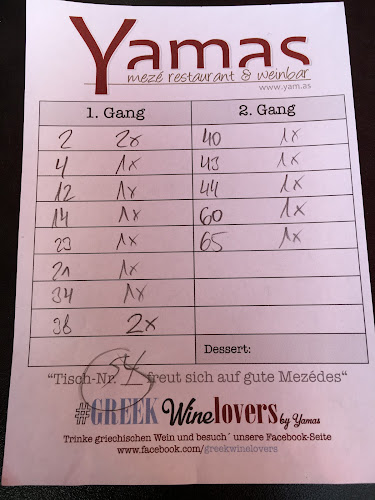 Yamas
mezé restaurant & weinbar
www.yam.as
1. Gang 2. Gang
2 2x 40 1x
4 1x 43 1x
12 1x 44 1x
14 1x 60 1x
23 1x 65 1x
21 1x
34 1x
38 2x
Dessert:
"Tisch-Nr. 54 freut sich auf gute Mezédes"
#GREEK Winelovers by Yamas
Trinke griechischen Wein und besuch´ unsere Facebook-Seite
www.facebook.com/greekwinelovers